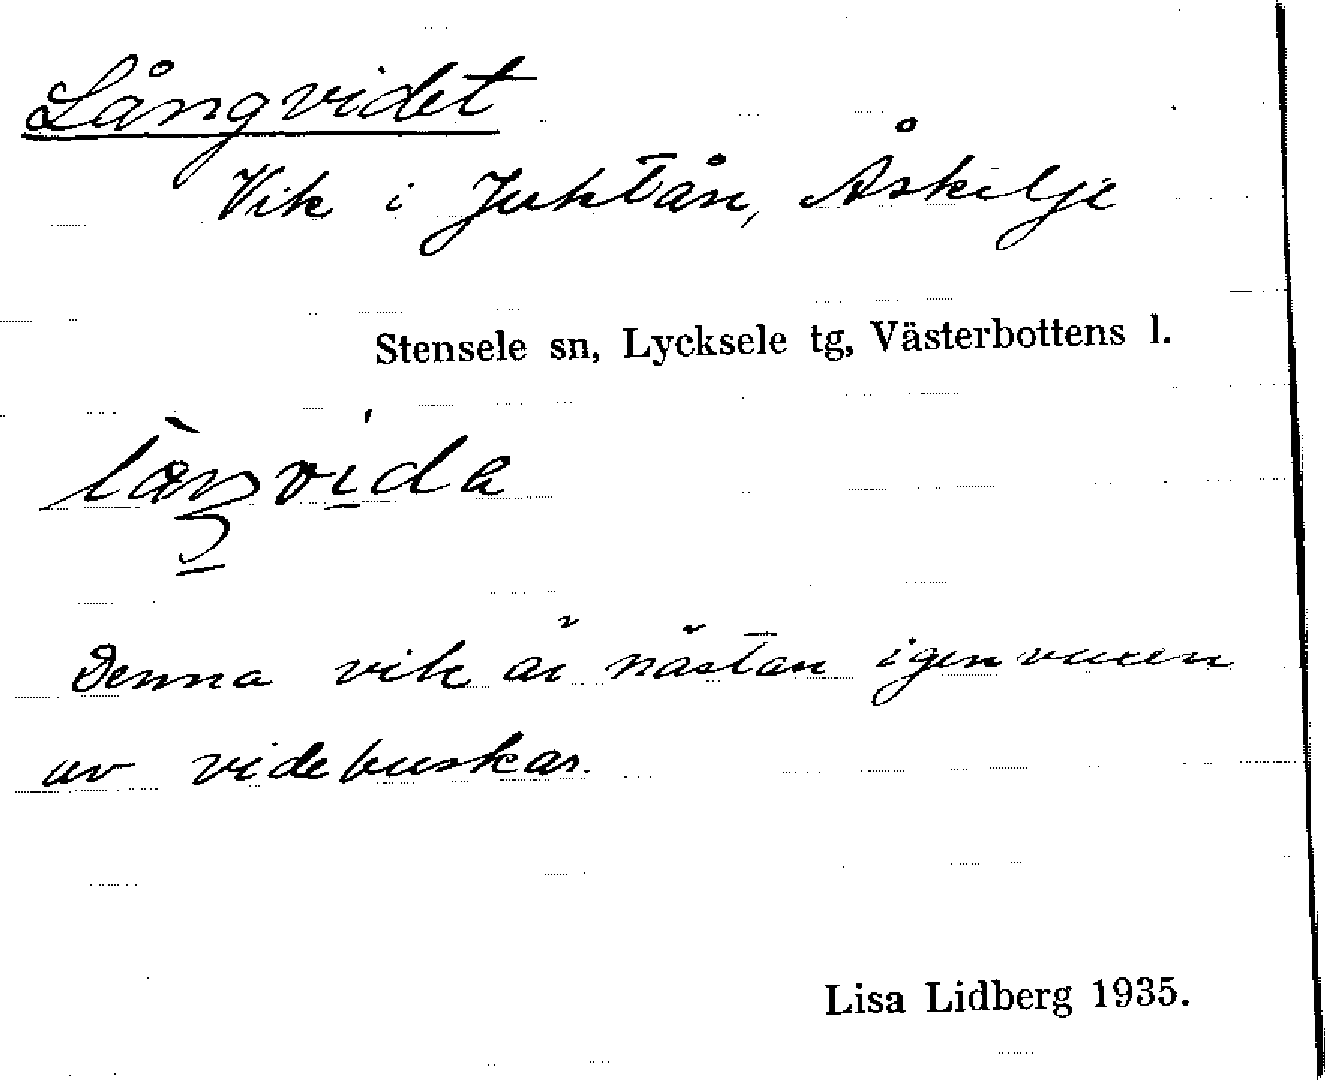 Långvidet
Vik i Juktån, Åskilje
Stensele sn, Lycksele tg, Västerbottens l.
Denna vik är nästan igenvuxen
av videbuskar.
Lisa Lidberg 1935.